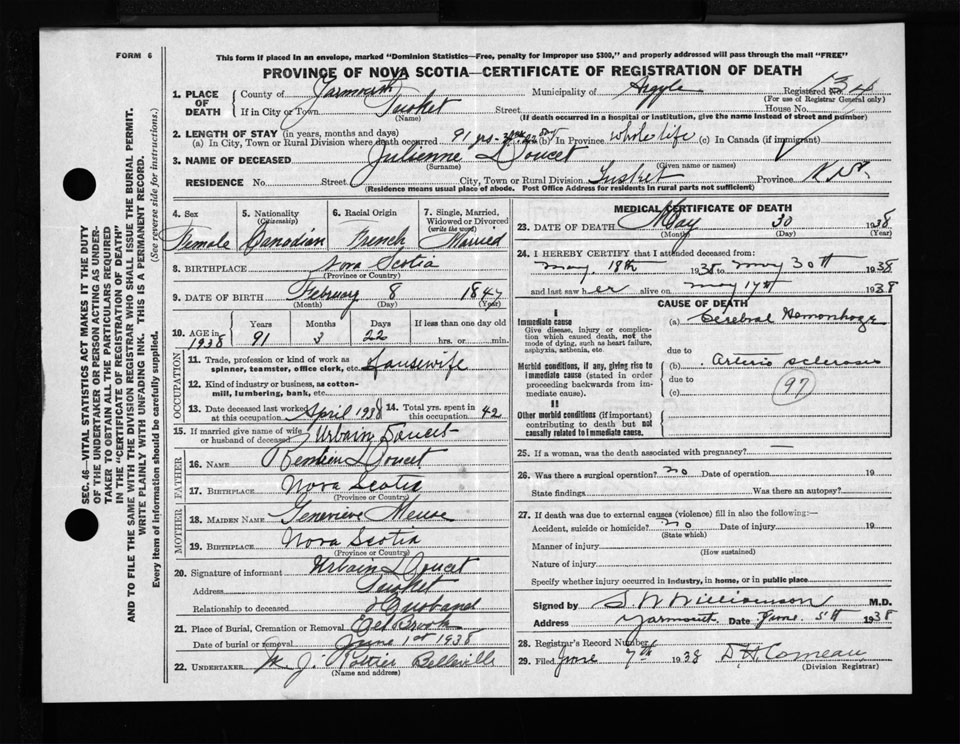 FORM 6
This form if placed in an envelope, marked "Dominion Statistics—Free, penalty for improper use $300," and properly addressed will pass through the mail "FREE"
PROVINCE OF NOVA SCOTIA—CERTIFICATE OF REGISTRATION OF DEATH
1. PLACE OF DEATH County of Yarmouth Municipality of Argyle Registered No. 4
(For use of Registrar General only)
If in City or Town Tusket Street House No.
(Name) (If death occurred in a hospital or institution, give the name instead of street and number)
2. LENGTH OF STAY (in years, months and days)
(a) In City, Town or Rural Division where death occurred 91 yrs (b) In Province whole life (c) In Canada (if immigrant)
3. NAME OF DECEASED Julienne Doucet
(Surname) (Given name or names)
RESIDENCE No. Street City, Town or Rural Division Tusket Province N.S.
(Residence means usual place of abode. Post Office Address for residents in rural parts not sufficient)
SEC. 46—VITAL STATISTICS ACT MAKES IT THE DUTY
OF THE UNDERTAKER OR PERSON ACTING AS UNDER-
TAKER TO OBTAIN ALL THE PARTICULARS REQUIRED
IN THE "CERTIFICATE OF REGISTRATION OF DEATH"
AND TO FILE THE SAME WITH THE DIVISION REGISTRAR WHO SHALL ISSUE THE BURIAL PERMIT.
WRITE PLAINLY WITH UNFADING INK. THIS IS A PERMANENT RECORD.
Every item of information should be carefully supplied. (See reverse side for instructions.)
4. Sex 5. Nationality (Citizenship) 6. Racial Origin 7. Single, Married, Widowed or Divorced (write the word)
Female Canadian French Married
8. BIRTHPLACE Nova Scotia
(Province or Country)
9. DATE OF BIRTH February 8 1847
(Month) (Day) (Year)
10. AGE in 1938 Years Months Days If less than one day old
91 3 22 hrs. or min.
OCCUPATION
11. Trade, profession or kind of work as spinner, teamster, office clerk, etc. Housewife
12. Kind of industry or business, as cotton-mill, lumbering, bank, etc.
13. Date deceased last worked at this occupation April 1938 14. Total yrs. spent in this occupation 42
15. If married give name of wife or husband of deceased Urbain Doucet
FATHER
16. Name Remben Doucet
17. BIRTHPLACE Nova Scotia
(Province or Country)
MOTHER
18. MAIDEN NAME Genevieve Meuse
19. BIRTHPLACE Nova Scotia
(Province or Country)
20. Signature of informant Urbain Doucet
Address Tusket
Relationship to deceased Husband
21. Place of Burial, Cremation or Removal Eel Brook
Date of burial or removal June 1st 1938
22. UNDERTAKER J. Pottier Belleville
(Name and address)
MEDICAL CERTIFICATE OF DEATH
23. DATE OF DEATH May 30 1938
(Month) (Day) (Year)
24. I HEREBY CERTIFY that I attended deceased from:
May 18th 1938 to May 30th 1938
and last saw her alive on May 17th 1938
CAUSE OF DEATH
I
Immediate cause (a) Cerebral Hemorrhage
Give disease, injury or complication which caused death, not the mode of dying, such as heart failure, asphyxia, asthenia, etc.
due to
Morbid conditions, if any, giving rise to immediate cause (stated in order proceeding backwards from immediate cause). (b) Arterio sclerosis
due to
(c) 97
II
Other morbid conditions (if important) contributing to death but not causally related to immediate cause.
25. If a woman, was the death associated with pregnancy? —
26. Was there a surgical operation? no Date of operation 19
State findings Was there an autopsy?
27. If death was due to external causes (violence) fill in also the following:—
Accident, suicide or homicide? no Date of injury 19
(State which)
Manner of injury
(How sustained)
Nature of injury
Specify whether injury occurred in industry, in home, or in public place
Signed by S W Williamson M.D.
Address Yarmouth Date June 5th 1938
28. Registrar's Record Number
29. Filed June 7th 1938 D. H. Comeau
(Division Registrar)